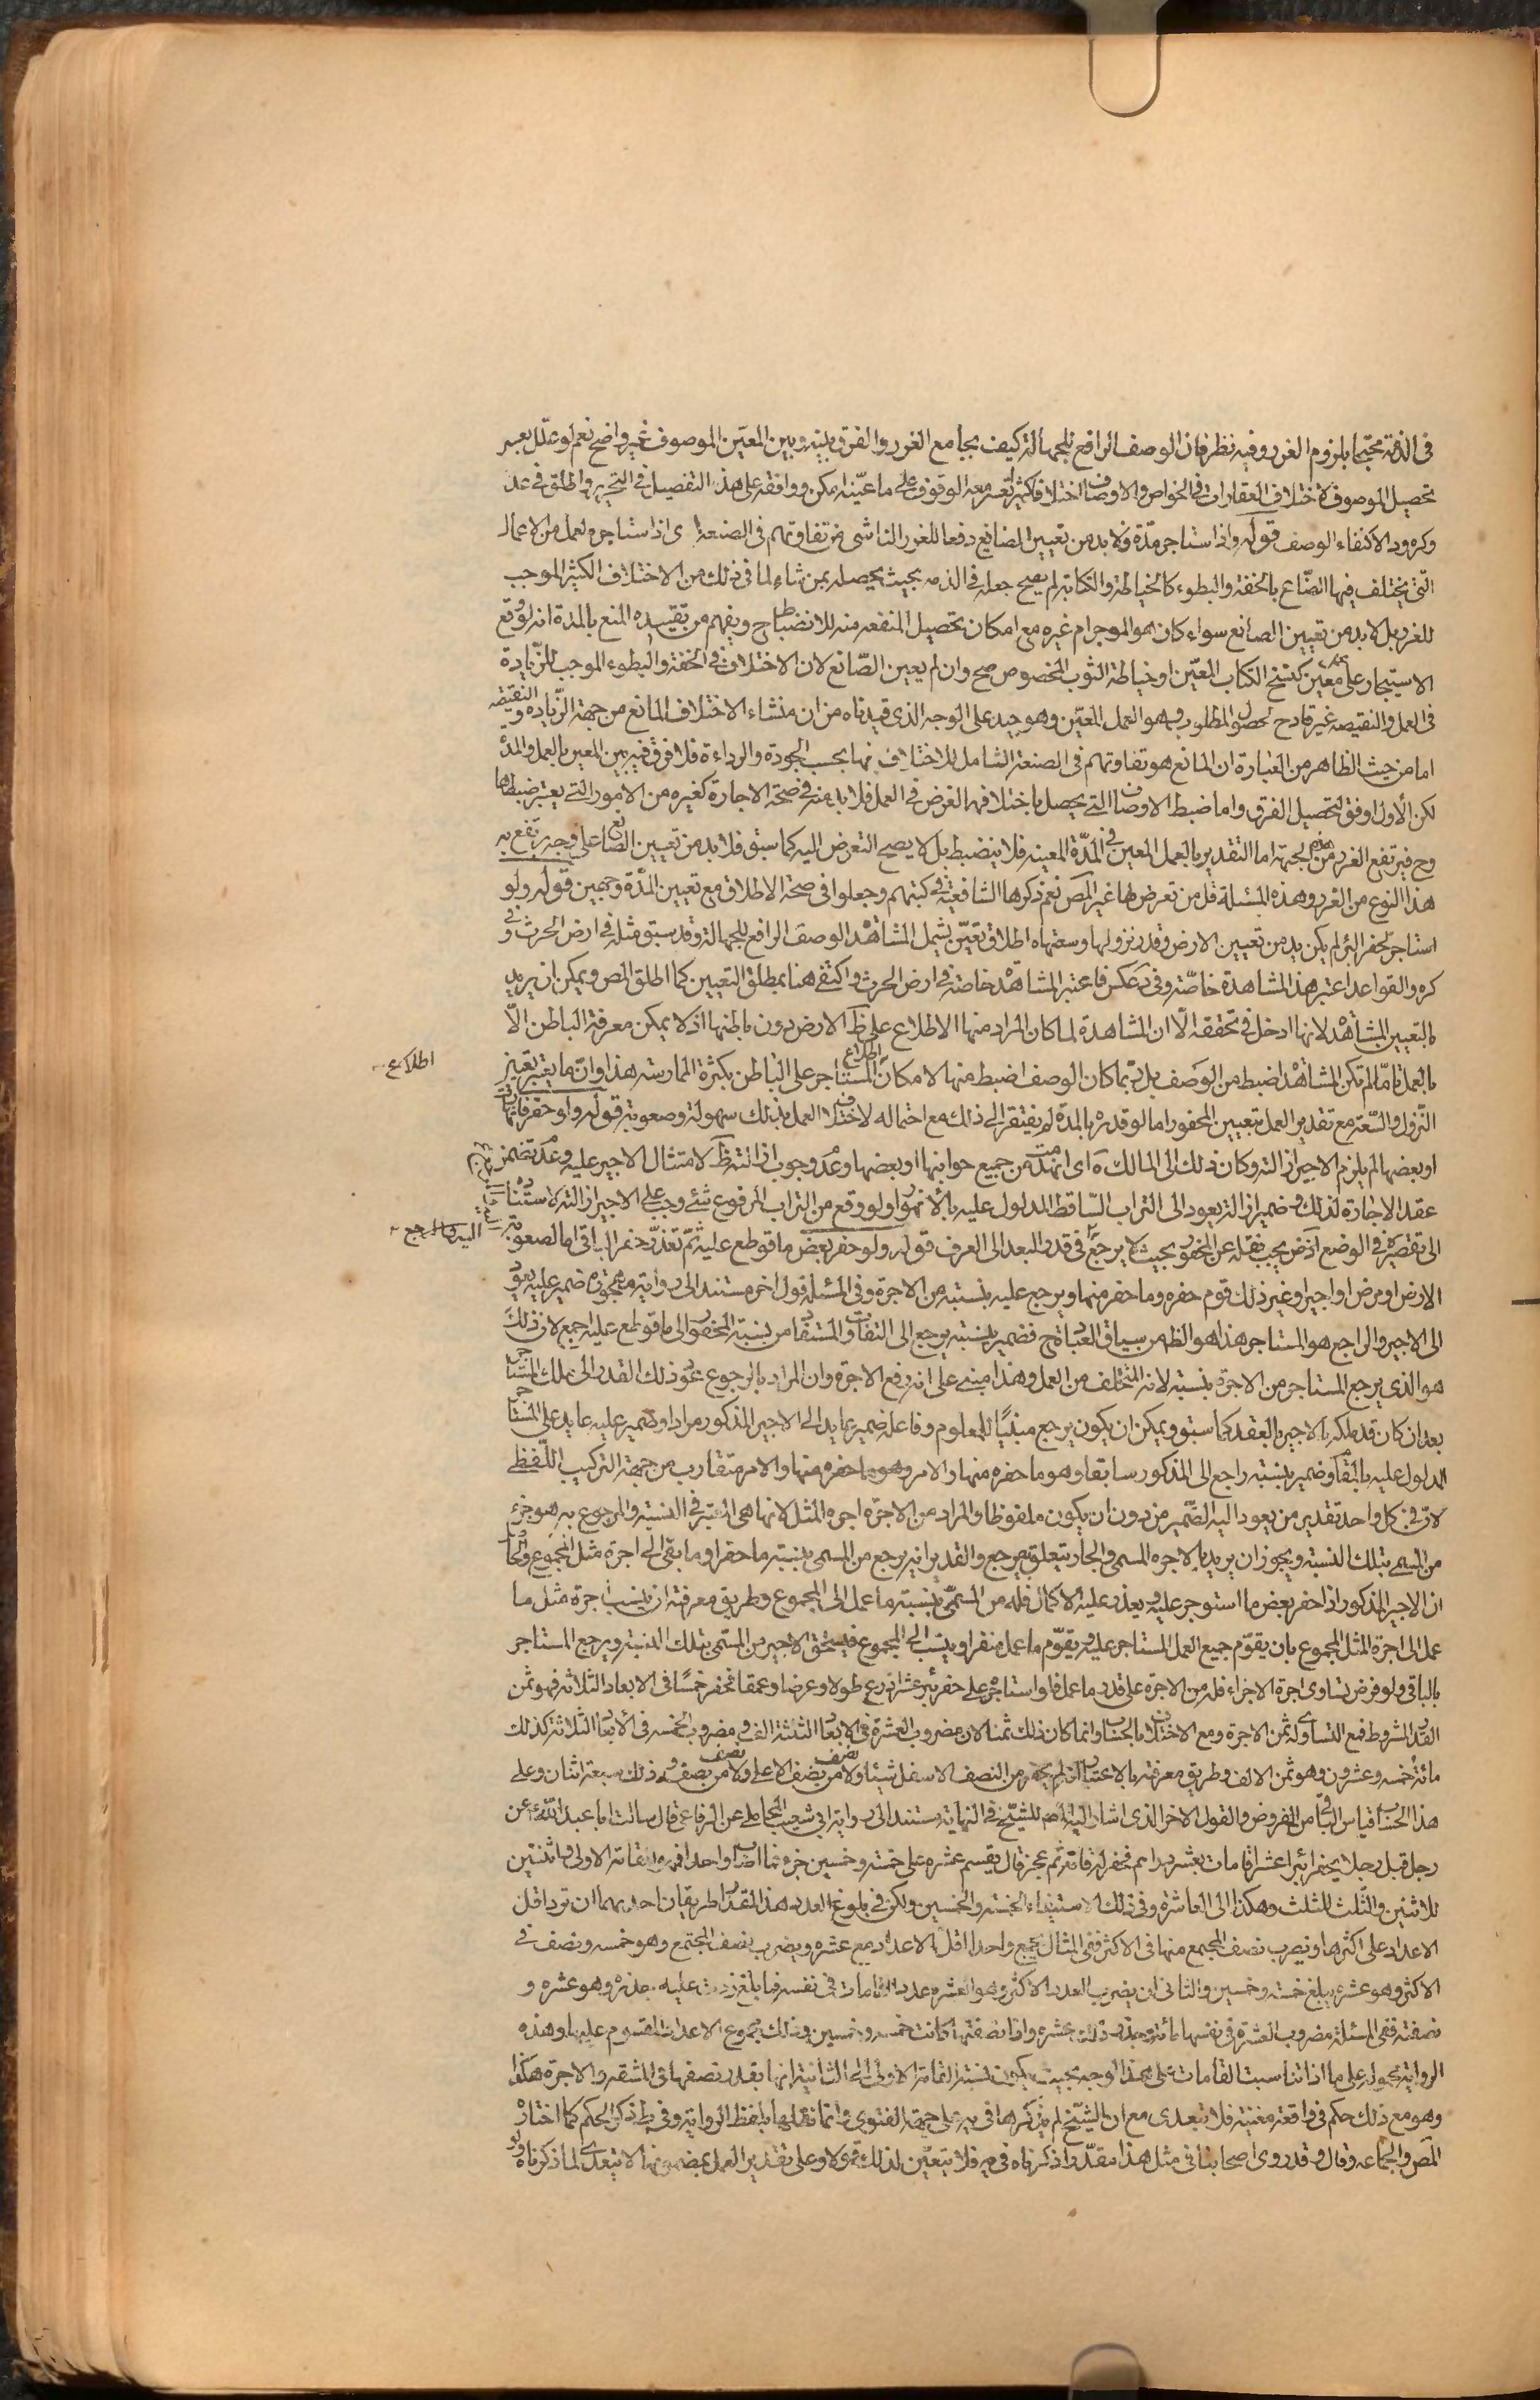 في الذمة محتجا بلزوم الغرر وفيه نظر فان الوصف الرافع للجهالة كيف يجامع الغرر والفرق بينه وبين المعين الموصوف غير واضح نعم لو علل بعسر
تحصيل الموصوف لاختلاف العقارات في الخواص والاوصاف اختلافا كثيرا يعسر معه الوقوف على ما عينه امكن ووافقه على هذا التفصيل في التحرير واطلق في عد
وكره ود الاكتفاء بالوصف قوله واذا استاجره مدة فلا بد من تعيين الصانع دفعا للغرر الناشي من تفاوتهم في الصنعة اى اذا استاجره لعمل من الاعمال
التي يختلف فيها الصناع بالخفة والبطوء كالخياطة والكتابة لم يصح جعله في الذمه بحيث يحصله بمن شاء لما في ذلك من الاختلاف الكثير الموجب
للغرر بل لا بد من تعيين الصانع سواء كان هو الموجر ام غيره مع امكان تحصيل المنفعه منه للانضباط ح ويفهم من تقييده المنع بالمدة انه لو وقع
الاستيجار على معين كنسخ الكتاب المعين او خياطة الثوب المخصوص صح وان لم يعين الصانع لان الاختلاف في الخفة والبطوء الموجب للزيادة
في العمل والنقيصه غير قادح لحصول المطلوب وهو العمل المعين وهو جيد على الوجه الذى قيدناه من ان منشاء الاختلاف المانع من جهة الزيادة والنقيصه
اما من حيث الظاهر من العبارة ان المانع هو تفاوتهم في الصنعة الشامل للاختلاف فيها بحسب الجودة والرداءة فلا فرق فيه بين المعين بالعمل والمدة
لكن الاول اوفق لتحصيل الفرق واما ضبط الاوصاف التي يحصل باختلافها الغرض في العمل فلا بد منه في صحة الاجارة كغيره من الامور التي يعتبر ضبطها
وح فيرتفع الغرر من هذه الجهة اما التقدير بالعمل المعين في المدة المعينه فلا ينضبط بل لا يصح التعرض اليه كما سبق فلا بد من تعيين الصانع على وجه يرتفع به
هذا النوع من الغرر وهذه المسئلة قل من تعرض لها غير المص نعم ذكرها الشافعية في كتبهم وجعلوا في صحة الاطلاق مع تعيين المدة وجهين قوله ولو
استاجر لحفر البئر لم يكن بد من تعيين الارض وقدر نزولها وسعتها اطلاق تعين يشمل المشاهدة والوصف الرافع للجهالة وقد سبق مثله في ارض الحرث وفي
كره والقواعد اعتبر هنا المشاهدة خاصة وفي د عكس فاعتبر المشاهدة خاصة في ارض الحرث واكتفى هنا بمطلق التعيين كما اطلق المص ويمكن ان يريد
بالتعيين المشاهدة لانها ادخل في تحققه الا ان المشاهدة لما كان المراد منها الاطلاع على ظ الارض دون باطنها اذ لا يمكن معرفة الباطن الا
بالعمل فاما لم تكن المشاهدة اضبط من الوصف بل ربما كان الوصف اضبط منها لامكان اطلاع المستاجر على الباطن بكثرة الممارسه هذا وان ما يعتبر تعيين
النزول والسعة مع تقدير العمل بتعيين المحفور اما لو قدره بالمدة لم يفتقر الى ذلك مع احتماله لاختلاف العمل بذلك سهولة وصعوبة قوله ولو حفرها فانهارت
او بعضها لم يلزم الاجير ازالته وكان ذلك الى المالك ه اى انهدمت من جميع جوانبها او بعضها وعدم وجوب ازالته ظ لامتثال الاجير عليه وعدم تضمن
عقد الاجارة لذلك وضمير ازالته يعود الى التراب الساقط المدلول عليه بالانهوار ولو وقع من التراب المرفوع شئ وجب على الاجير ازالته لاستناده
الى تقصيره في الوضع اذ يجب نقله عن المحفور بحيث لا يرجع في قدر البعد الى العرف قوله ولو حفر بعض ما قوطع عليه ثم تعذر حفر الباقي اما لصعوبة
الارض او مرض الاجير او غير ذلك قوم حفره وما حفر منها ويرجع عليه بنسبته من الاجرة وفي المسئلة قول اخر مستند الى رواية مهجورة ضمير عليه يعود
الى الاجير والراجع هو المستاجر هذا هو الظ من سياق العبارة وح فضمير بنسبته يرجع الى التفاوت المستفاد من نسبة المحفور الى ما قوطع عليه اجمع لان ذلك
هو الذي يرجع المستاجر من الاجرة بنسبته لانه المتخلف من العمل وهذا مبنى على انه دفع الاجرة وان المراد بالرجوع عود ذلك القدر الى ملك المستاجر
بعد ان كان قد ملكه الاجير بالعقد كما سبق ويمكن ان يكون يرجع مبنيا للمعلوم وفاعله ضمير عايد الى الاجير المذكور مرارا وضمير عليه عايد على المستاجر
المدلول عليه بالمقام وضمير بنسبته راجع الى المذكور سابقا وهو ما حفره منها والامر متقارب من جهة التركيب اللفظي
لان في كل واحد تقدير من يعود اليه الضمير من دون ان يكون ملفوظا والمراد من الاجرة اجره المثل لانها هي المعتبر في النسبة والمرجوع به هو جزء
من المسمى بتلك النسبة ويجوز ان يريد بالاجره المسمى والجار يتعلق بيرجع والتقدير انه يرجع من المسمى بنسبة ما حفر او ما بقى الى اجرة مثل المجموع
ان الاجير المذكور اذا حفر بعض ما استوجر عليه وتعذر عليه الاكمال فله من المسمى بنسبة ما عمل الى المجموع وطريق معرفته ان ينسب اجرة مثل ما
عمل الى اجرة المثل المجموع بان يقوم جميع العمل المستاجر عليه ويقوم ما عمل منفردا وينسب الى المجموع فيستحق الاجير من المسمى بتلك النسبة ويرجع المستاجر
بالباقي ولو فرض تساوى اجرة الاجزاء فله من الاجرة على قدر ما عمل فلو استاجره على حفر بئر عشر اذرع طولا وعرضا وعمقا فحفر خمسا في الابعاد الثلاثة فهو ثمن
القدر المشروط فمع التساوى له ثمن الاجرة ومع الاختلاف بالحساب وانما كان ذلك ثمنا لان مضروب العشرة في الابعاد الثلثة الف ومضروب الخمسه في الابعاد الثلاثة كذلك
مائة خمسه وعشرون وهو ثمن الالف وطريق معرفته بالاعتبار انه لم يحفر من النصف الاسفل شيئا ولا من نصف نصف الاعلى ولا من نصف نصفه وذلك سبعة اثمان وعلى
هذا الحساب قياس الباقي من الفروض والقول الاخر الذى اشار اليه المص للشيخ في النهاية مستند الى رواية ابي شعيب المحاملي عن الرفاعي قال سالت ابا عبد الله ع عن
رجل قبل رجلا يحفر له بئرا عشر قامات بعشرة دراهم فحفر له قامة ثم عجز قال يقسم عشره على خمسة وخمسين جزوا فما اصاب واحدا فهو للقامة الاولى والاثنين
للاثنين والثلث للثلث وهكذا الى العاشرة وفي ذلك استيفاء الخمسة والخمسين ولكن في بلوغ العدد هذا المقدار طريقان احدهما ان تزد اقل
الاعداد على اكثرها وتضرب نصف المجتمع منها في الاكثر ففي المثال يجمع واحدا اقل الاعداد مع عشره ويضرب نصف المجتمع وهو خمسه ونصف في
الاكثر وهو عشره يبلغ خمسة وخمسين والثاني ان يضرب العدد الاكثر وهو العشره عدد القامات في نفسه فما بلغ زدت عليه جذره وهو عشره و
نصفته ففي المسئلة مضروب العشرة في نفسها مائة وجذر ذلك عشرة واذا نصفتها كانت خمسه وخمسين وذلك مجموع الاعداد المقسوم عليها وهذه
الرواية محمولة على ما اذا تناسبت القامات على هذا الوجه بحيث يكون نسبة القامة الاولى الى الثانية انها بقدر نصفها في المشقه والاجرة هكذا
وهو مع ذلك حكم في واقعة معينة فلا يتعدى مع ان الشيخ لم يذكرها في يه على جهة الفتوى وانما نقلها بلفظ الرواية وفي ط ذكر الحكم كما اختاره
المص والجماعه وقال وقد روى اصحابنا في مثل هذا مقدرا ذكرناه في يه فلا يتعين لذلك قولا وعلى تقدير العمل بمضمونها لا يتعدى لما ذكرناه ولو
اطلاع